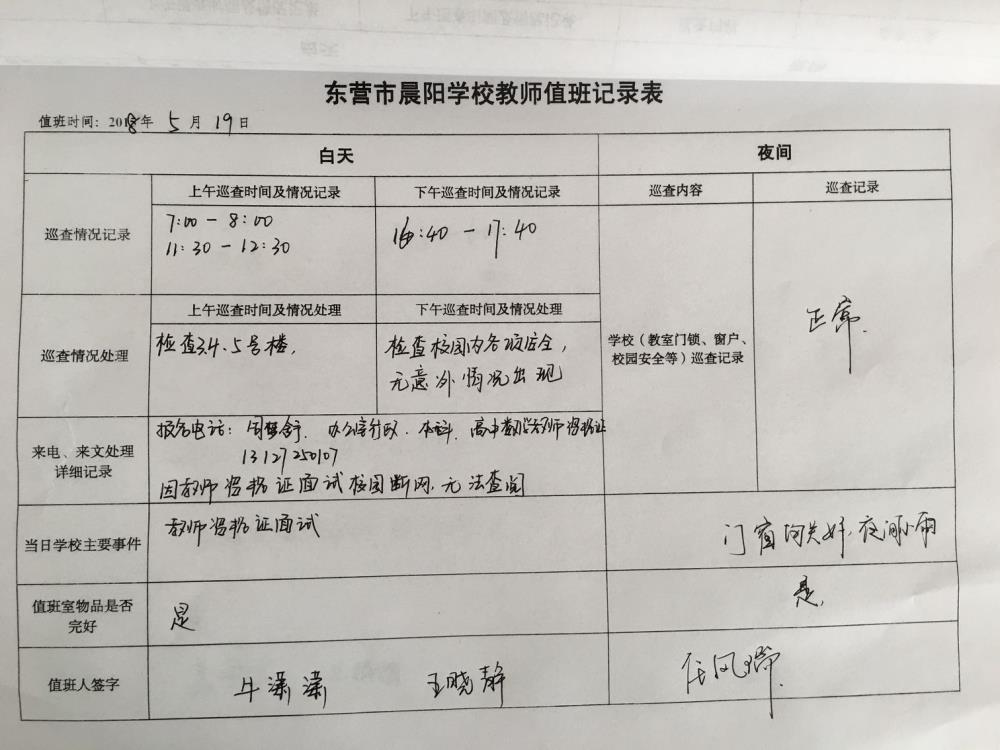 东营市晨阳学校教师值班记录表
值班时间：2018年 5 月 19 日
白天
夜间
巡查情况记录
上午巡查时间及情况记录
下午巡查时间及情况记录
巡查内容
巡查记录
7:00 - 8:00
11:30 - 12:30
16:40 - 17:40
学校（教室门锁、窗户、
校园安全等）巡查记录
正常.
巡查情况处理
上午巡查时间及情况处理
下午巡查时间及情况处理
检查3.4.5号楼,
检查校园内各项安全,
无意外情况出现
来电、来文处理
详细记录
报名电话: 办公室行政. 本科. 高中数学教师资格证
13127250107
因教师资格证面试校园断网.无法查阅
当日学校主要事件
教师资格证面试
门窗均关好,夜间小雨
值班室物品是否
完好
是
是,
值班人签字
牛潇潇
王晓静
任风瑞